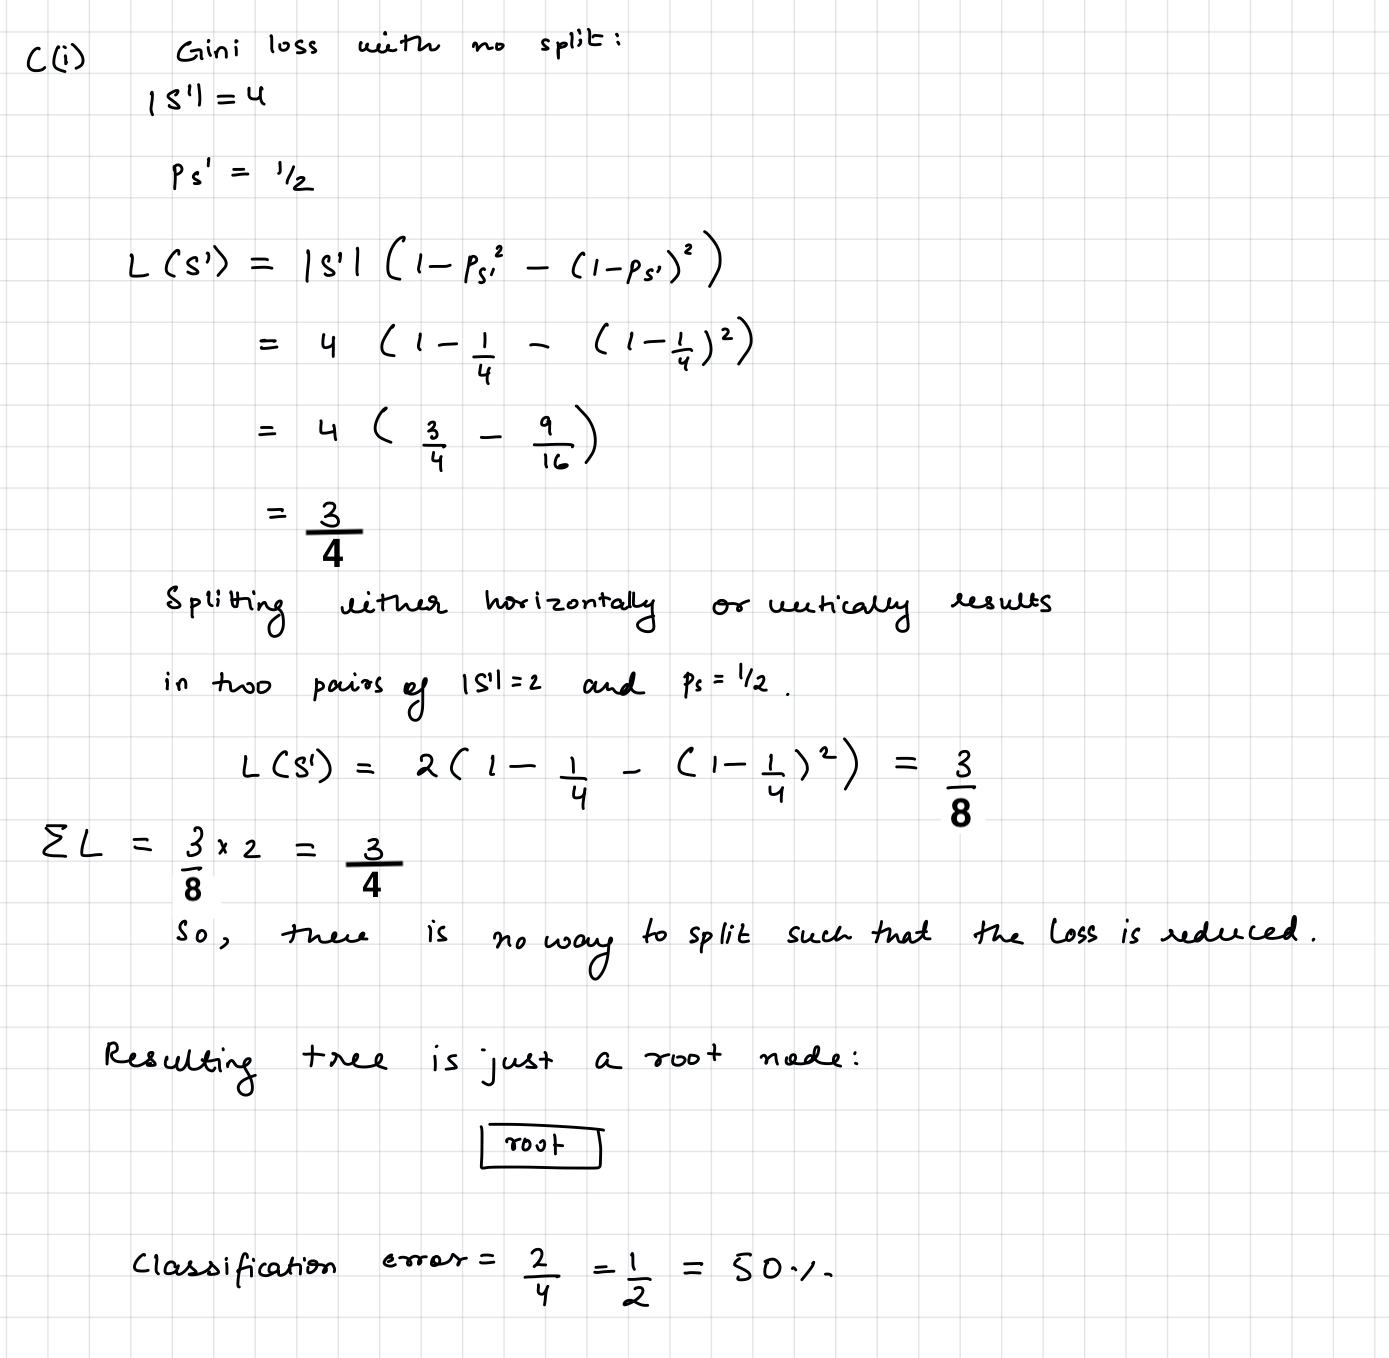 C(i) Gini loss with no split:
|S'| = 4
Ps' = 1/2
L(S') = |S'| (1 - Ps'² - (1-Ps')²)
= 4 (1 - 1/4 - (1 - 1/4)²)
= 4 (3/4 - 9/16)
= 3/4
Splitting either horizontally or vertically results
in two pairs of |S'| = 2 and Ps = 1/2.
L(S') = 2(1 - 1/4 - (1 - 1/4)²) = 3/8
ΣL = 3/8 x 2 = 3/4
So, there is no way to split such that the loss is reduced.
Resulting tree is just a root node:
root
Classification error = 2/4 = 1/2 = 50%